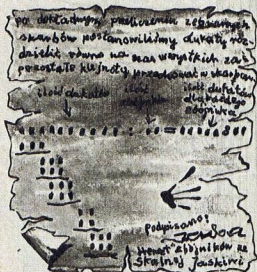 po dokładnym przeliczeniu zebranych
skarbów postanowiliśmy dukaty roz-
dzielić równo na nas wszystkich zaś
pozostałe klejnoty przechować w skarbcu
ilość dukatów
ilość
zbójników
ilość dukatów
dla każdego
zbójnika
podpisano:
Herszt zbójników ze
Skalnej Jaskini